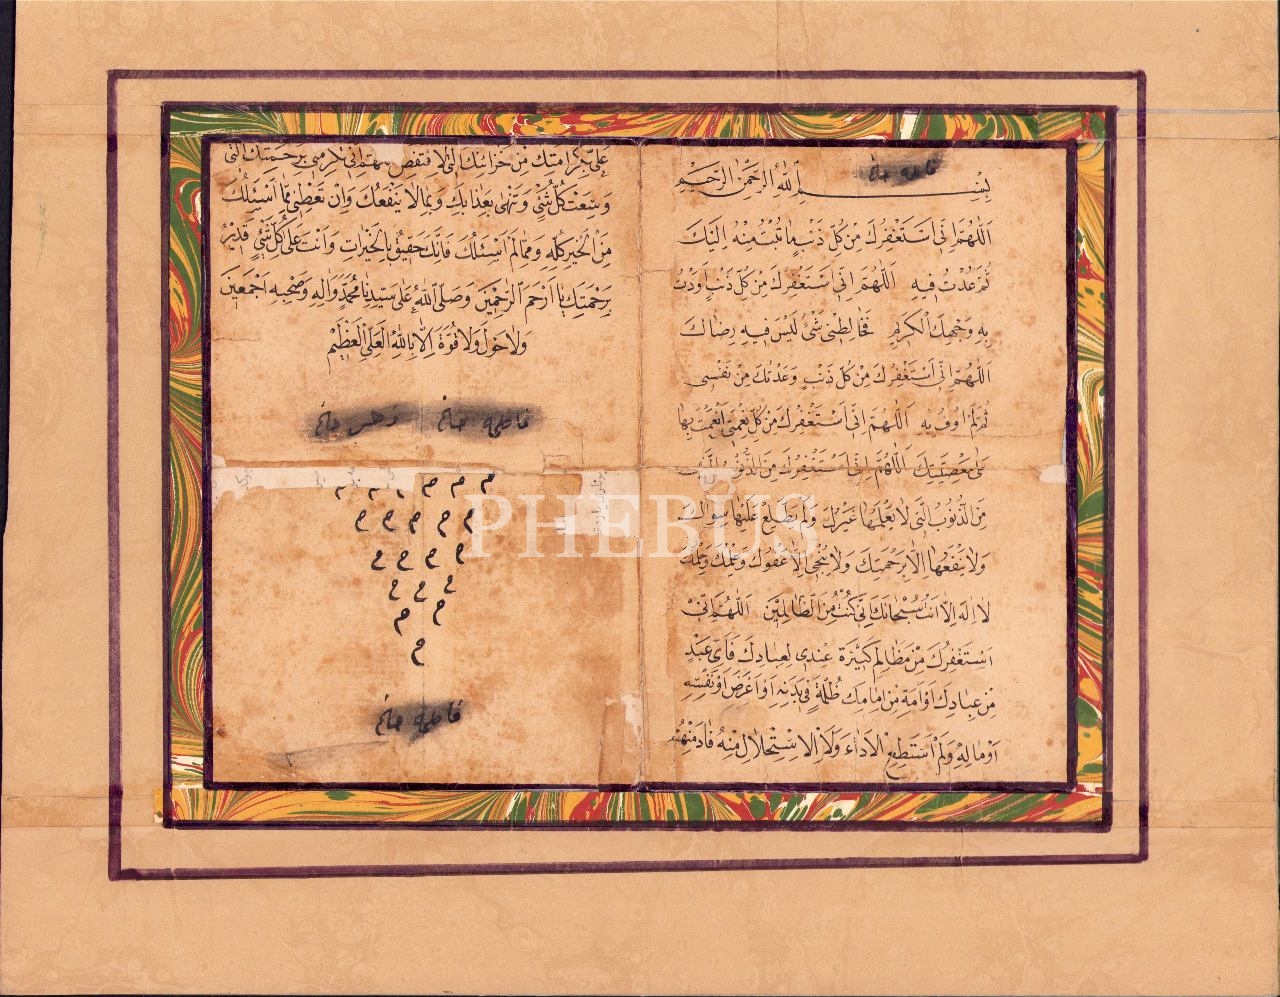 فاطمه خانم
بِسْمِ اللّٰهِ الرَّحْمٰنِ الرَّحِيْمِ
اَللّٰهُمَّ اِنّى اَسْتَغْفِرُكَ مِنْ كُلِّ ذَنْبٍ مٰا تُبْتُ مِنْهُ اِلَيْكَ
ثُمَّ عُدْتُ فيهِ اَللّٰهُمَّ اِنّى اَسْتَغْفِرُكَ مِنْ كُلِّ ذَنْبٍ اَرَدْتُ
بِهِ وَجْهِكَ الْكَريم فَخٰالِطْنى شَىْءٌ لَيْسَ فيهِ رِضٰاكَ
اَللّٰهُمَّ اِنّى اَسْتَغْفِرُكَ مِنْ كُلِّ ذَنْبٍ وَعَدْتُكَ مِنْ نَفْسى
ثُمَّ لَمْ اُوفِ بِهِ اَللّٰهُمَّ اِنّى اَسْتَغْفِرُكَ مِنْ كُلِّ نِعْمَةٍ اَنْعَمْتَ بِهٰا
مَعْصِيَتِكَ اَللّٰهُمَّ اِنّى اَسْتَغْفِرُكَ مِنَ الذُّنُوبِ
مِنَ الذُّنُوبِ الَّتى لٰا يَعْلَمُهٰا غَيْرُكَ وَلَمْ يَطَّلِعْ عَلَيْهٰا سِوٰاكَ
وَلٰا يَنْفَعُهٰا اِلّٰا بِرَحْمَتِكَ وَلٰا يُنْجى اِلّٰا عَفْوُكَ وَحِلْمُكَ
لٰا اِلٰهَ اِلّٰا اَنْتَ سُبْحٰانَكَ اِنّى كُنْتُ مِنَ الظّٰالِمينَ اَللّٰهُمَّ اِنّى
اَسْتَغْفِرُكَ مِنْ مَظٰالِمَ كَثيرَةٍ عِنْدى لِعِبٰادِكَ فَاَىُّ عَبْدٍ
مِنْ عِبٰادِكَ اَوْ اَمَةٍ مِنْ اِمٰائِكَ ظُلْمَةٍ فى بَدَنِهِ اَوْ عَرْضِ اَوْ نَفْسِهِ
اَوْ مٰالِهِ وَلَمْ اَسْتَطِعِ الْاَدٰاءَ وَلَا الْاِسْتِحْلٰالَ مِنْهُ
عَلَىَّ بِكَرٰامَتِكَ مِنْ خَزٰائِنِكَ الَّتى لٰا تَنْقُصُ بِرَحْمَتِكَ الَّتى
وَسِعَتْ كُلَّ شَىْءٍ وَ بِعَذٰابِكَ وَبِمٰا لٰا يَنْفَعُكَ وَاَنْ تُعْطِنى مِمّٰا اَسْئَلُكَ
مِنَ الْخَيْرِ كُلِّهِ وَمِمّٰا لَمْ اَسْئَلُكَ فَاِنَّكَ حَقيقٌ بِالْخَيْرٰاتِ وَاَنْتَ عَلٰى كُلِّ شَىْءٍ قَديرٌ
بِرَحْمَتِكَ يٰا اَرْحَمَ الرّٰحِمينَ وَصَلَّى اللّٰهُ عَلٰى سَيِّدِنٰا مُحَمَّدٍ وَاٰلِهِ وَصَحْبِهِ اَجْمَعينَ
وَلٰا حَوْلَ وَلٰا قُوَّةَ اِلّٰا بِاللّٰهِ الْعَلِىِّ الْعَظيمِ
فاطمه خانم خانم
م م م م م م
م م م م م
م م م م
م م م
م م
م
فاطمه خانم
PHEBUS